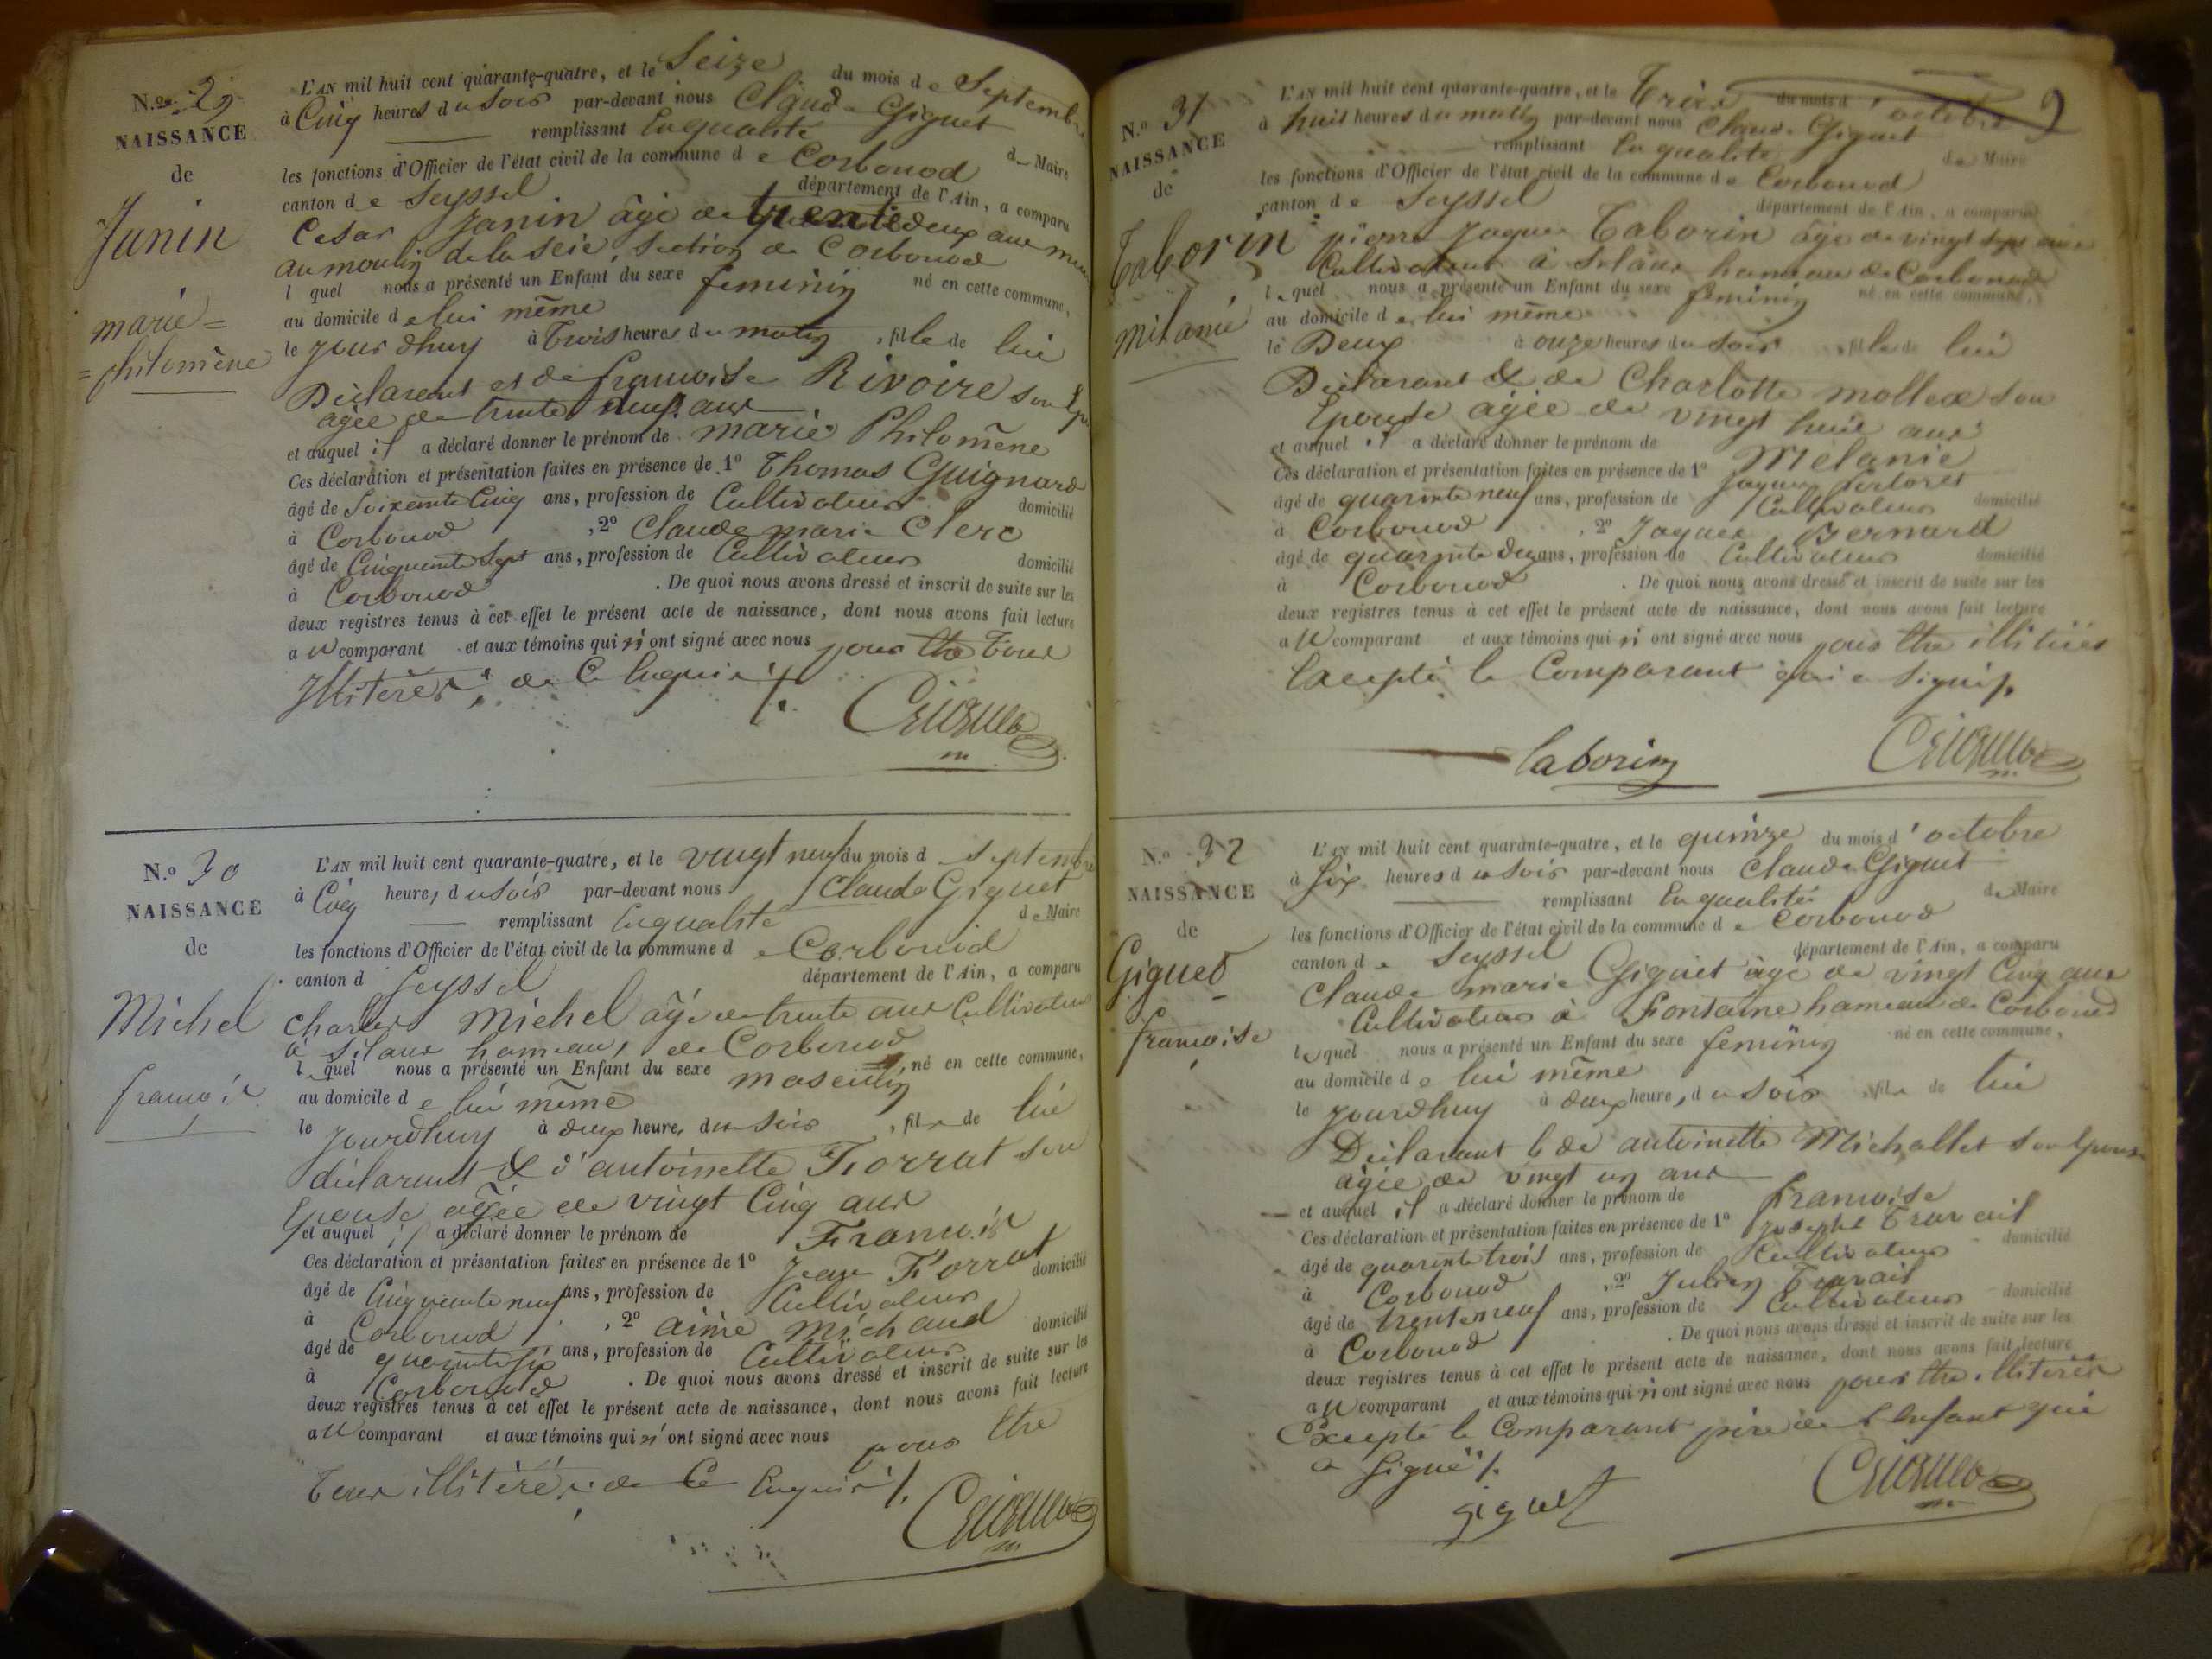 N.º 29
NAISSANCE
de
Janin
marie =
= philomène
L'AN mil huit cent quarante-quatre, et le Seize du mois de Septembre
à Cinq heures du soir par-devant nous Claude Giguet
remplissant En qualité de Maire
les fonctions d'Officier de l'état civil de la commune de Corbonod
canton de Seyssel département de l'Ain, a comparu
Cesar Janin âgé de trente deux ans
au moulin de la scie, section de Corbonod
lequel nous a présenté un Enfant du sexe feminin né en cette commune,
au domicile de lui même
le jourdhuy à trois heures du matin, fille de lui
Déclarant et de françoise Rivoire son Epouse
agée de trente ans
et auquel il a déclaré donner le prénom de marie Philomène
Ces déclaration et présentation faites en présence de 1º Thomas Guignard
âgé de Soixante Cinq ans, profession de Cultivateur domicilié
à Corbonod, 2º Claude marie Clerc
âgé de Cinquante Sept ans, profession de Cultivateur domicilié
à Corbonod. De quoi nous avons dressé et inscrit de suite sur les
deux registres tenus à cet effet le présent acte de naissance, dont nous avons fait lecture
au comparant et aux témoins qui n'ont signé avec nous pour être tous
Illiterés, de ce Enquis
N.º 30
NAISSANCE
de
Michel
françois
L'AN mil huit cent quarante-quatre, et le vingt neuf du mois d septembre
à Cinq heures du soir par-devant nous Claude Giguet
remplissant En qualité de Maire
les fonctions d'Officier de l'état civil de la commune de Corbonod
canton d Seyssel département de l'Ain, a comparu
Charles Michel âgé de trente ans Cultivateur
à Silans hameau de Corbonod
lequel nous a présenté un Enfant du sexe masculin né en cette commune,
au domicile de lui même
le jourdhuy à deux heures du soir, fils de lui
déclarant & d'antoinette Forrat son
Epouse agée de vingt Cinq ans
et auquel il a déclaré donner le prénom de François
Ces déclaration et présentation faites en présence de 1º Jean Forrat
âgé de Cinquante neuf ans, profession de Cultivateur domicilié
à Corbonod, 2º aimé Michaud
âgé de quarante six ans, profession de Cultivateur domicilié
à Corbonod. De quoi nous avons dressé et inscrit de suite sur les
deux registres tenus à cet effet le présent acte de naissance, dont nous avons fait lecture
au comparant et aux témoins qui n'ont signé avec nous pour être
tous illitéré, de ce Enquis
9
N.º 31
NAISSANCE
de
Taborin
Mélanie
L'AN mil huit cent quarante-quatre, et le Trois du mois d'octobre
à huit heures du matin par-devant nous Claude Giguet
remplissant En qualité de Maire
les fonctions d'Officier de l'état civil de la commune de Corbonod
canton de Seyssel département de l'Ain, a comparu
pierre Jaques Taborin âgé de vingt sept ans
Cultivateur à Silans hameau de Corbonod
lequel nous a présenté un Enfant du sexe feminin né en cette commune,
au domicile de lui même
le Deux à onze heures du soir, fille de lui
Déclarant & de Charlotte mollex son
Epouse agée de vingt huit ans
et auquel il a déclaré donner le prénom de Mélanie
Ces déclaration et présentation faites en présence de 1º Jaques
âgé de quarante neuf ans, profession de Cultivateur domicilié
à Corbonod, 2º Jaques Bernard
âgé de quarante deux ans, profession de Cultivateur domicilié
à Corbonod. De quoi nous avons dressé et inscrit de suite sur les
deux registres tenus à cet effet le présent acte de naissance, dont nous avons fait lecture
au comparant et aux témoins qui n'ont signé avec nous pour être illitérés
Excepté le Comparant qui a signé
taborin
N.º 32
NAISSANCE
de
Giguet
françoise
L'AN mil huit cent quarante-quatre, et le quinze du mois d'octobre
à six heures du soir par-devant nous Claude Giguet
remplissant En qualité de Maire
les fonctions d'Officier de l'état civil de la commune de Corbonod
canton de Seyssel département de l'Ain, a comparu
Claude marie Giguet âgé de vingt Cinq ans
Cultivateur à Fontaine hameau de Corbonod
lequel nous a présenté un Enfant du sexe feminin né en cette commune,
au domicile de lui même
le jourdhuy à deux heures du soir, fille de lui
Déclarant & de antoinette Michallet son Epouse
âgée de vingt un ans
et auquel il a déclaré donner le prénom de françoise
Ces déclaration et présentation faites en présence de 1º Joseph Travail
âgé de quarante trois ans, profession de Cultivateur domicilié
à Corbonod, 2º Julien Travail
âgé de trente neuf ans, profession de Cultivateur domicilié
à Corbonod. De quoi nous avons dressé et inscrit de suite sur les
deux registres tenus à cet effet le présent acte de naissance, dont nous avons fait lecture
au comparant et aux témoins qui n'ont signé avec nous pour être illitérés
Excepté le Comparant père de l'Enfant qui
a signé
giguet